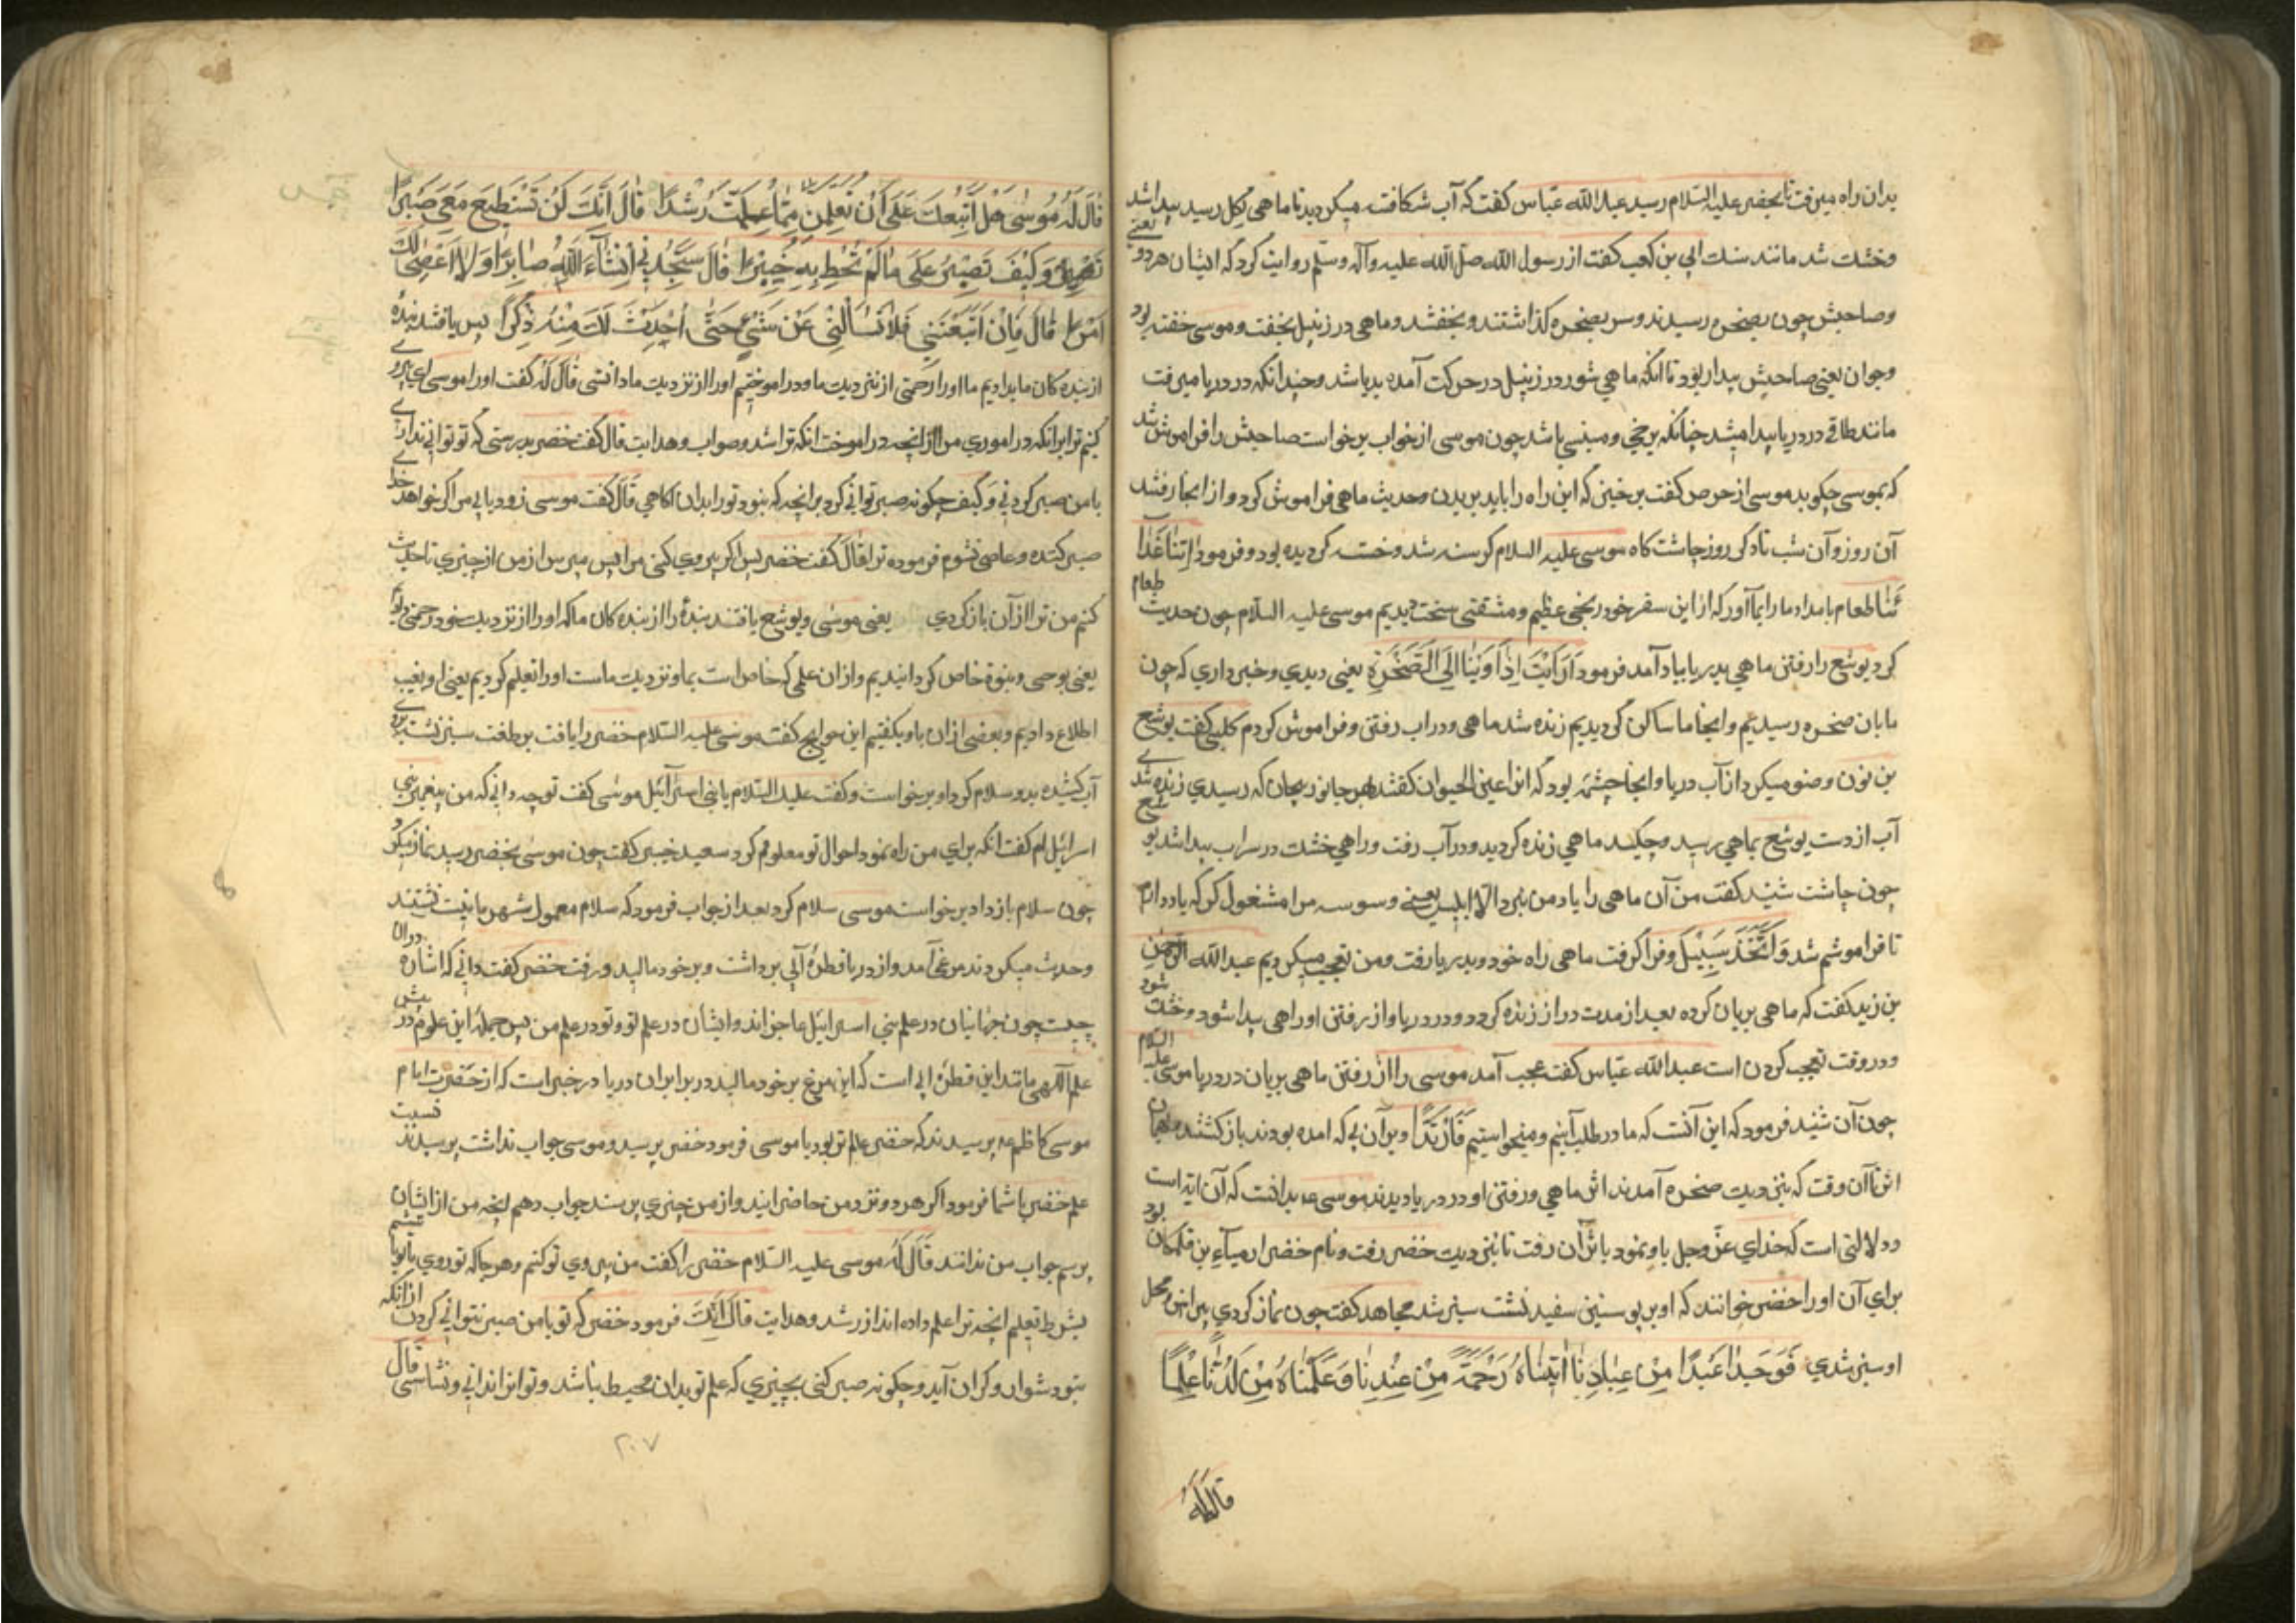 بدان راه میرفت تا بخضر علیه السّلام رسید عبد الله عبّاس گفت که آب شکافته میکردید تا ماهی بکل رسید پیدا شد
وخشك شد مانند سنك ابی بن کعب کفت از رسول الله صلّ الله علیه وآله وسلّم روایت کرد که ایشان هر دو یعنے
وصاحبش چون بصخره رسیدند وسر بصخره کذاشتند وبخفتند وماهی در زنبیل بخفت وموسی خفته بود
وجوان یعنی صاحبش بیدار بود تا انکه ماهی شور در زنبیل در حرکت آمده بدریا شد وچندانکه در دریا میرفت
مانند طاقے در دریا پیدا میشد چنانکه برخی ومبنسی باشد چون موسی از خواب برخواست صاحبش را فراموش شد
که بموسی چکوید موسی از حرص کفت برخیز که این راه را باید بریدن وحدیث ماهی فراموش کرد و از انجا رفتند
آن روز وآن شب تا دکر روز چاشت کاه موسی علیه السلام کرسنه شد وخسته کردیده بود وفرمود اٰتِنٰا غَدٰا
ئَنٰا طعام بامداد ما را بما آور که از این سفر خود رنجی عظیم ومشقتی سخت دیدیم موسی علیه السّلام چون حدیث طعام
کرد یوشع را رفتن ماهی بدریا بیاد آمد فرمود اَرَاَیْتَ اِذْ اَوَیْنٰا اِلَی الصَّخْرَةِ یعنی دیدی وخبر داری که چون
ما بان صخره رسیدیم وانجا ما ساکن کردیدیم زنده شد ماهی ودر اب رفتن وفراموش کردم کلبی کفت یوشع
بن نون وضو میکرد از آب دریا وانجا چشمه بود که انرا عین الحیوان کفتند بهر جانور بیجان که رسیدی زنده شدے
آب از دست یوشع بماهی رسید وچکید ماهی زنده کردید ودر آب رفت وراهی خشك در سراب پیدا شد یوشع
چون چاشت شنید کفت من آن ماهی را یاد من نبرد الّا ابلیس یعنے وسوسه مرا مشغول کرد که یاد دارم
تا فراموشم شد وَاتَّخَذَ سَبِیْلَهُ وفرا کرفت ماهی راه خود وبدریا رفت ومن تعجب میکردیم عبد الله الرحمن
بن زید کفت که ماهی بریان کرده بعد از مدت دراز زنده کردد ودر دریا واز رفتن او راهی پیدا شود وخشك شود
ودر وقت تعجب کردن است عبد الله عبّاس کفت عجب آمد موسی را از رفتن ماهی بریان در دریا موسی علیه السلام
چون آن شنید فرمود که این آنست که ما در طلب آنیم ومیخواستیم فَارْتَدّٰا وبر آن پی که امده بودند باز کشتند همان
اثر تا آن وقت که بنزدیك صخره آمدند اثر ماهی ورفتن او در دریا دیدند موسی عه بدانست که آن آیة است
ودلالتی است که خدای عزّ وجل باو نمود باثر آن رفت تا بنزدیك خضر رفت ونام خضر ارمیاء بن قلمکان بود
برای آن او را خضر خوانند که او بر پوستین سفید نشست سبز شد مجاهد کفت چون نماز کردی پیرامن محل
او سبز شدی فَوَجَدٰا عَبْدًا مِنْ عِبٰادِنٰا اٰتَیْنٰاهُ رَحْمَةً مِنْ عِنْدِنٰا وَعَلَّمْنٰاهُ مِنْ لَدُنّٰا عِلْمًا
قال له
قٰالَ لَهُ مُوسٰی هَلْ اَتَّبِعُكَ عَلٰی اَنْ تُعَلِّمَنِ مِمّٰا عُلِّمْتَ رُشْدًا قٰالَ اِنَّكَ لَنْ تَسْتَطِیعَ مَعِیَ صَبْرًا
وَکَیْفَ تَصْبِرُ عَلٰی مٰا لَمْ تُحِطْ بِهِ خُبْرًا قٰالَ سَتَجِدُنِی اِنْشٰآءَ اللّٰهُ صٰابِرًا وَلٰا اَعْصِی لَكَ
اَمْرًا قٰالَ فَاِنْ اتَّبَعْتَنِی فَلٰا تَسْاَلْنِی عَنْ شَیْءٍ حَتّٰی اُحْدِثَ لَكَ مِنْهُ ذِکْرًا پس یافتند بندهٔ
از بنده کان ما بدادیم ما او را رحمتی از نزدیك ما ودر اموختیم او را از نزدیك ما دانشی قٰالَ لَهُ کفت او را موسی ای پیروے
کنم ترا بر انکه در اموزی مرا از انچه در اموخت انکه ترا شد وصواب وهدایت قال کفت خضر بدرستی که تو توانی ندارے
با من صبر کردنی وَکَیْفَ چکونه صبر توانی کرد بر انچه که نبود تو را بدان اکاهی قٰالَ کفت موسی زود یابی مرا اکر خواهد خداے
صبر کننده وعاصی نشوم فرموده ترا قٰالَ کفت خضر پس اکر پیروی کنی مرا پس مپرس از من از چیزی تا حدیث
کنم من ترا از آن باز کردی یعنی موسی ویوشع یافتند بندهٔ را از بنده کان ما که او را از نزدیك خود رحمتی دادیم
یعنی بوحی ونبوة خاص کردانیدیم واز ان علمی که خاص است بما ونزدیك ماست او را تعلیم کردیم یعنی او بغیب
اطلاع دادیم وبعضی از ان باو بکفتیم ابن جوایح کفت موسی علیه السّلام خضر را یافت بر طنفسه سبز نشسته بروے
آب کشیده بدو سلام کرد او برخواست وکفت علیك السّلام یا نبی اسرآئیل موسی کفت تو چه دانی که من پیغمبر بنی
اسرائیل ام کفت انکه برای من راه نمود احوال تو معلوم کرد سعید خبیر کفت چون موسی بخضر رسید نماز میکرد
چون سلام باز داد برخواست موسی سلام کرد بعد از جواب فرمود که سلام معمول شهر ما نیست نشستند
وحدیث میکردند مرغی آمد واز دریا قطرهٔ آبی برداشت وبر خود مالید ورفت خضر کفت دانی که اشاره در انا
چیست چون جهانیان در علم بنی اسرائیل عاجزاند وایشان در علم تو وتو در علم من پس جملهٔ این علوم در پیش
علم الٓهی مانند این قطرهٔ ابی است که این مرغ بر خود مالید در برابر ان دریا در خبر است که از حضرت امام
موسی کاظم عه پرسیدند که خضر عالم تر بود یا موسی فرمود خضر پرسید وموسی جواب نداشت پرسیدند نسبت
علم خضر با شما فرمود اکر هردو نزد من حاضر ایند واز من چیزی پرسند جواب دهم انچه من از ایشان
پرسم جواب من ندانند قٰالَ لَهُ موسی علیه السّلام خضر را کفت من پیروی تو کنم وهر جا که تو روی با تو باشم
بشرط تعلیم انچه ترا علم داده اند از رشد وهدایت قٰالَ اِنَّكَ فرمود خضر که تو با من صبر نتوانی کردن از انکه
بتود شوار وکران آید وچکونه صبر کنی بچیزی که علم تو بدان محیط نباشد وتو انرا ندانی ونشناسی قٰالَ
۲۰۷